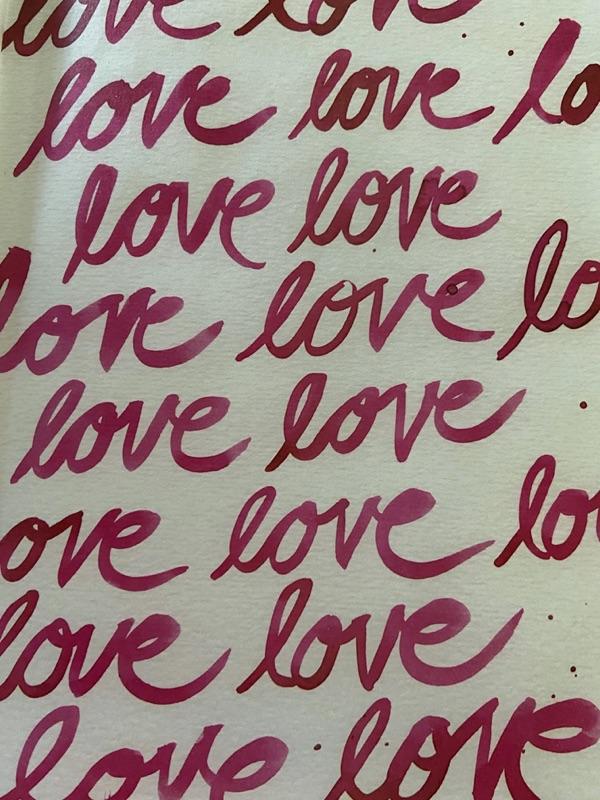 love love
love love lo
love love
love love lo
love love
ove love lov
love love
love love